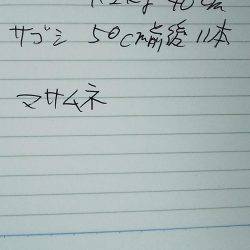 40cm
サゴシ 50cm前後 11本
マサムネ